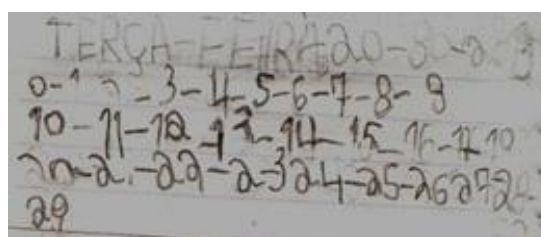 TERÇA-FEIIRA 20-3
0-1 - 3-4-5-6-7-8-9
10-11-12-13-14-15-16-17
-22-2-3 24-25-26 27 28
29